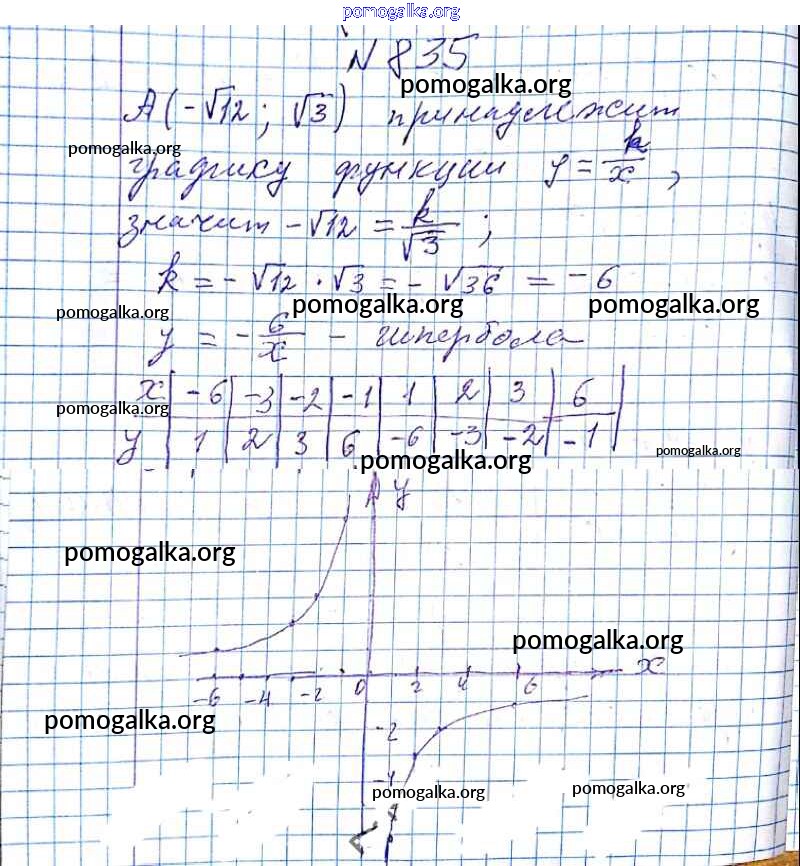 pomogalka.org
N 835
pomogalka.org
A(-√12; √3) принадлежит
pomogalka.org
графику функции y = k/x,
значит -√12 = k/√3;
k = -√12 · √3 = -√36 = -6
pomogalka.org pomogalka.org pomogalka.org
y = -6/x - гипербола
x | -6 | -3 | -2 | -1 | 1 | 2 | 3 | 6 |
pomogalka.org
y | 1 | 2 | 3 | 6 | -6 | -3 | -2 | -1 |
pomogalka.org pomogalka.org
y
pomogalka.org
pomogalka.org
x
-6 -4 -2 0 2 4 6
pomogalka.org
-2
-4
pomogalka.org pomogalka.org